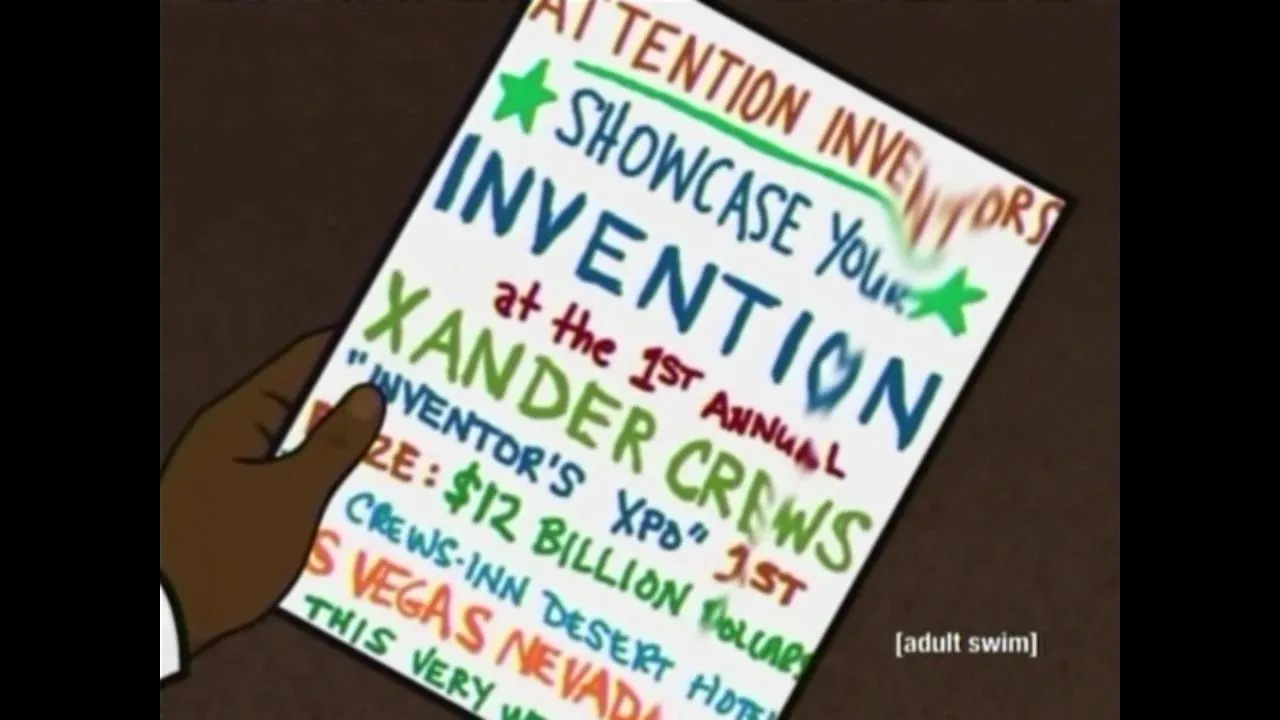 ATTENTION INVENTORS
SHOWCASE YOUR
INVENTION
at the 1ST ANNUAL
XANDER CREWS
"INVENTOR'S XPO" 1ST
ZE: $12 BILLION DOLLARS
CREWS-INN DESERT HOTEL
S VEGAS NEVADA
THIS VERY
[adult swim]